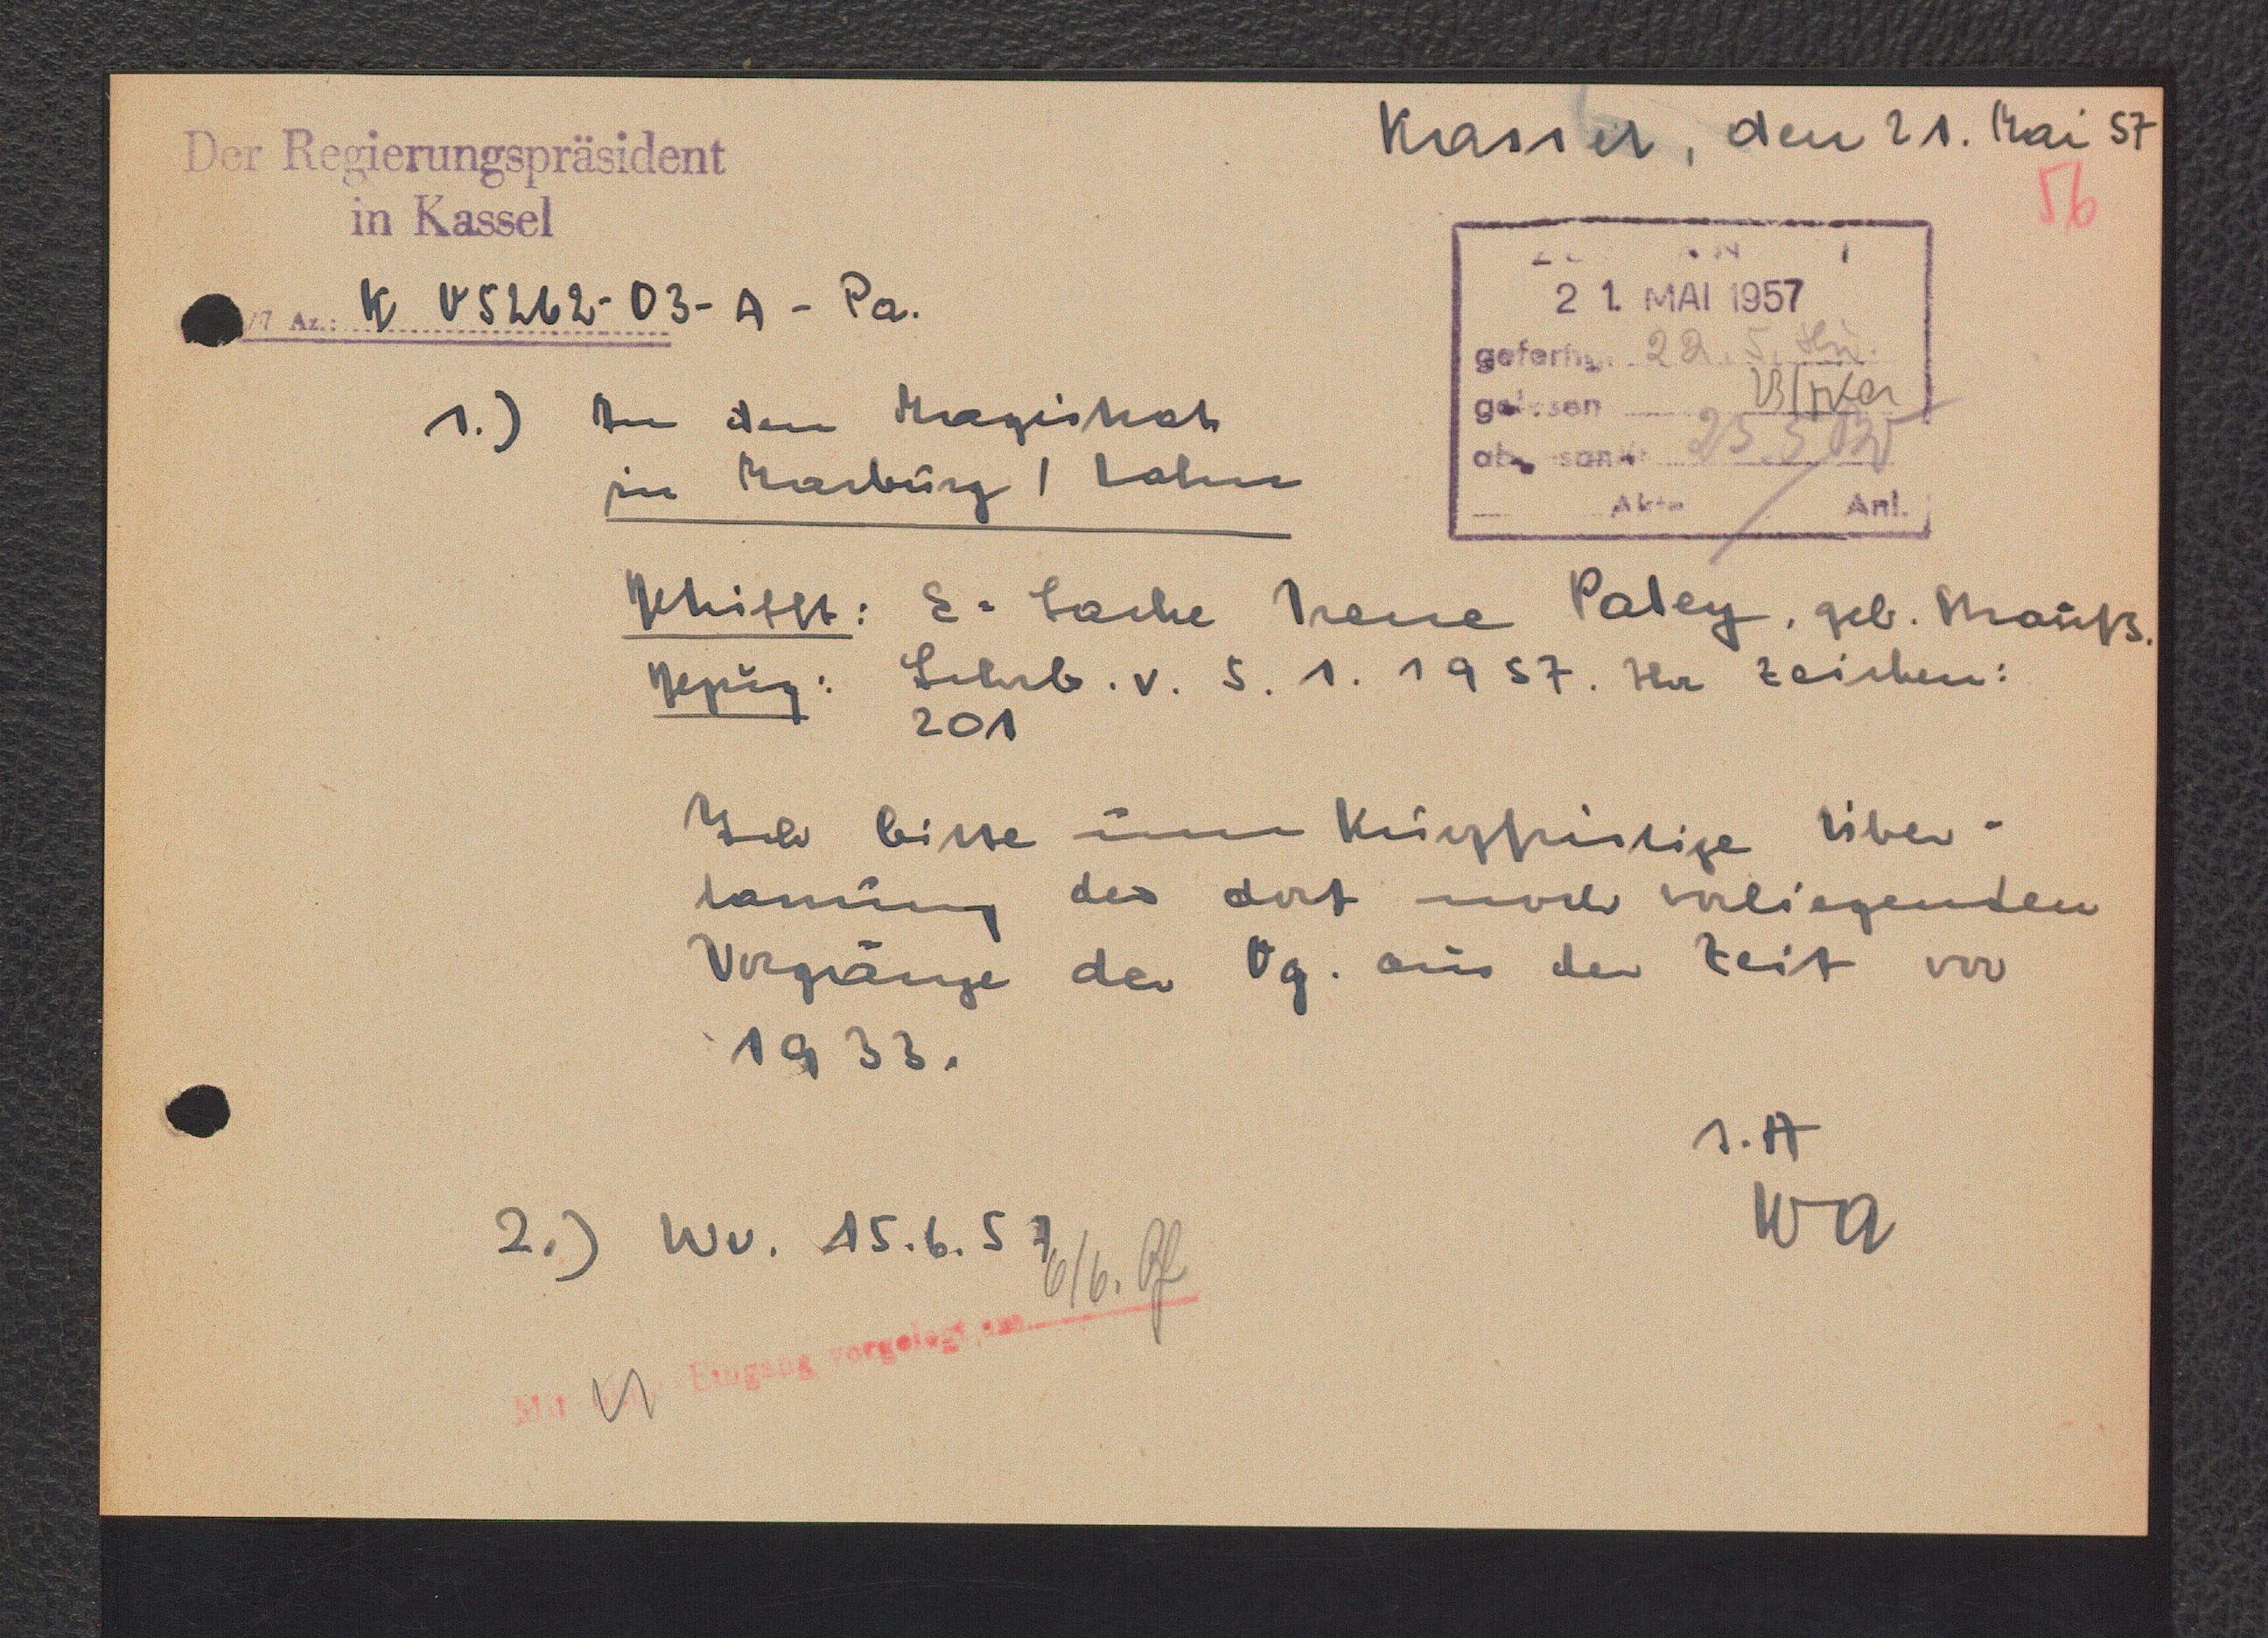 Der Regierungspräsident
in Kassel
Kassel, den 21. Mai 57
56
/7 Az.: K V5262-03-A-Pa.
21. MAI 1957
gefertigt 22.5.
gelesen
abgesandt 25.5
Akte Anl.
1.) An den Magistrat
in Marburg / Lahn
Betrifft: E-Sache Irene Paley, geb. Strauß.
Bezug: Schrb. v. 5.1.1957. Ihr Zeichen:
201
Ich bitte um kurzfristige Über-
lassung der dort noch vorliegenden
Vorgänge der Vg. aus der Zeit vor
1933.
I.A
Wa
2.) Wv. 15.6.57
6/6.
Eingang vorgelegt am